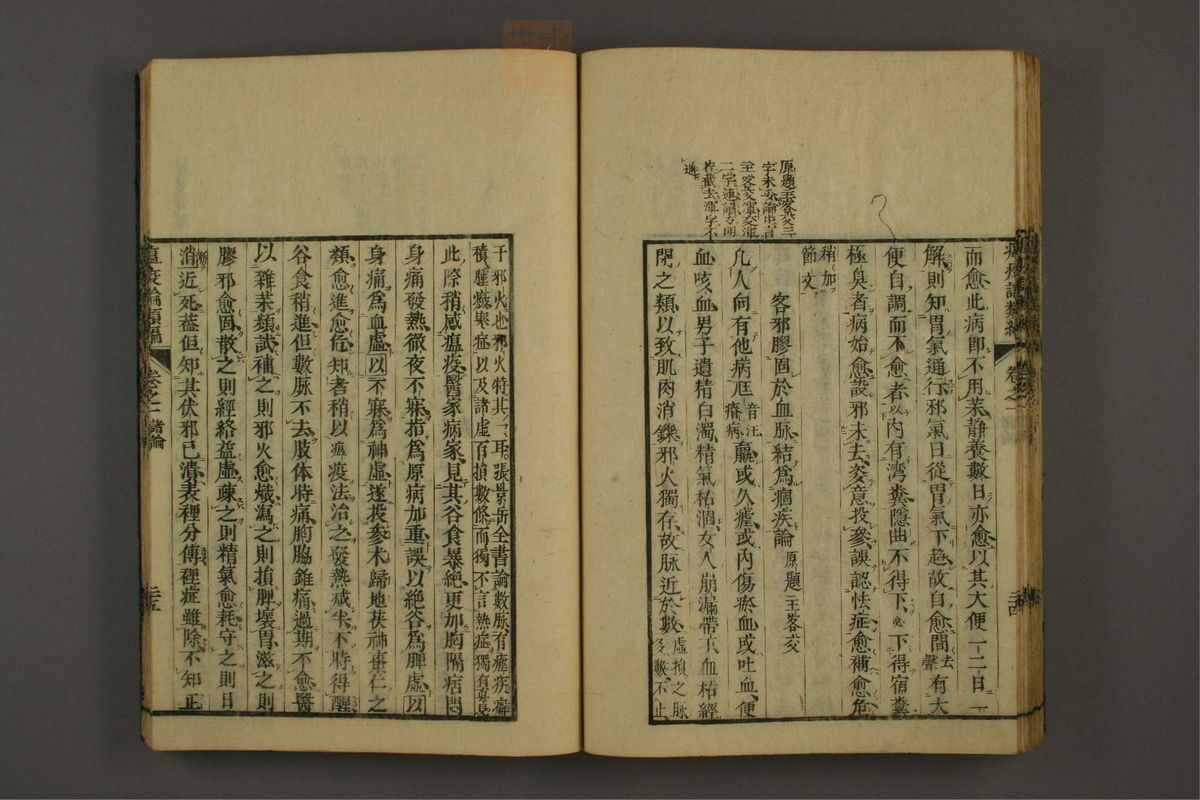 原題主客交三
字未妥論中言
主客交渾交渾
二字連讀方明
若截去渾字不
通
而愈此病卽不用茱靜養數日亦愈以其大便一二日一
解則知胃氣通行邪氣日從胃氣下趋故自愈間去聲有大
便自調而不愈者以內有湾糞隱曲不得下必下得宿糞
極臭者病始愈設邪未去妄意投參誤認怯症愈補愈危
稍加
節文
客邪膠固於血脉結爲痼疾論原題主客交
凡人向有他病尫音汪瘠病羸或久瘧或內傷瘀血或吐血便
血咳血男子遺精白濁精氣枯涸女人崩漏帶下血枯經
閉之類以致肌肉消鑠邪火獨存故脉近於數虛損之脉多數不止
于邪火也邪火特其一耳張景岳全書論數脉有瘧疾癖
積腫癥寒症以及諸虛百損數條而獨不言熱症獨有真見
此際稍感瘟疫醫家病家見其谷食暴絕更加胸隔痞悶
身痛發熱徹夜不寐指爲原病加重誤以絕谷爲脾虛以
身痛爲血虛以不寐爲神虛遂投參术歸地茯神棗仁之
類愈進愈危知者稍以瘟疫法治之發熱减半不時得醒
谷食稍進但數脉不去肢体時痛胸脇錐痛過期不愈醫
以雜茱類試補之則邪火愈熾瀉之則損脾壞胃滋之則
膠邪愈固散之則經絡益虛疎之則精氣愈耗守之則日
漸消近死葢但知其伏邪已潰表裡分傳裡症雖除不知正
瘟疫論類編
卷之二
諸論
二十五